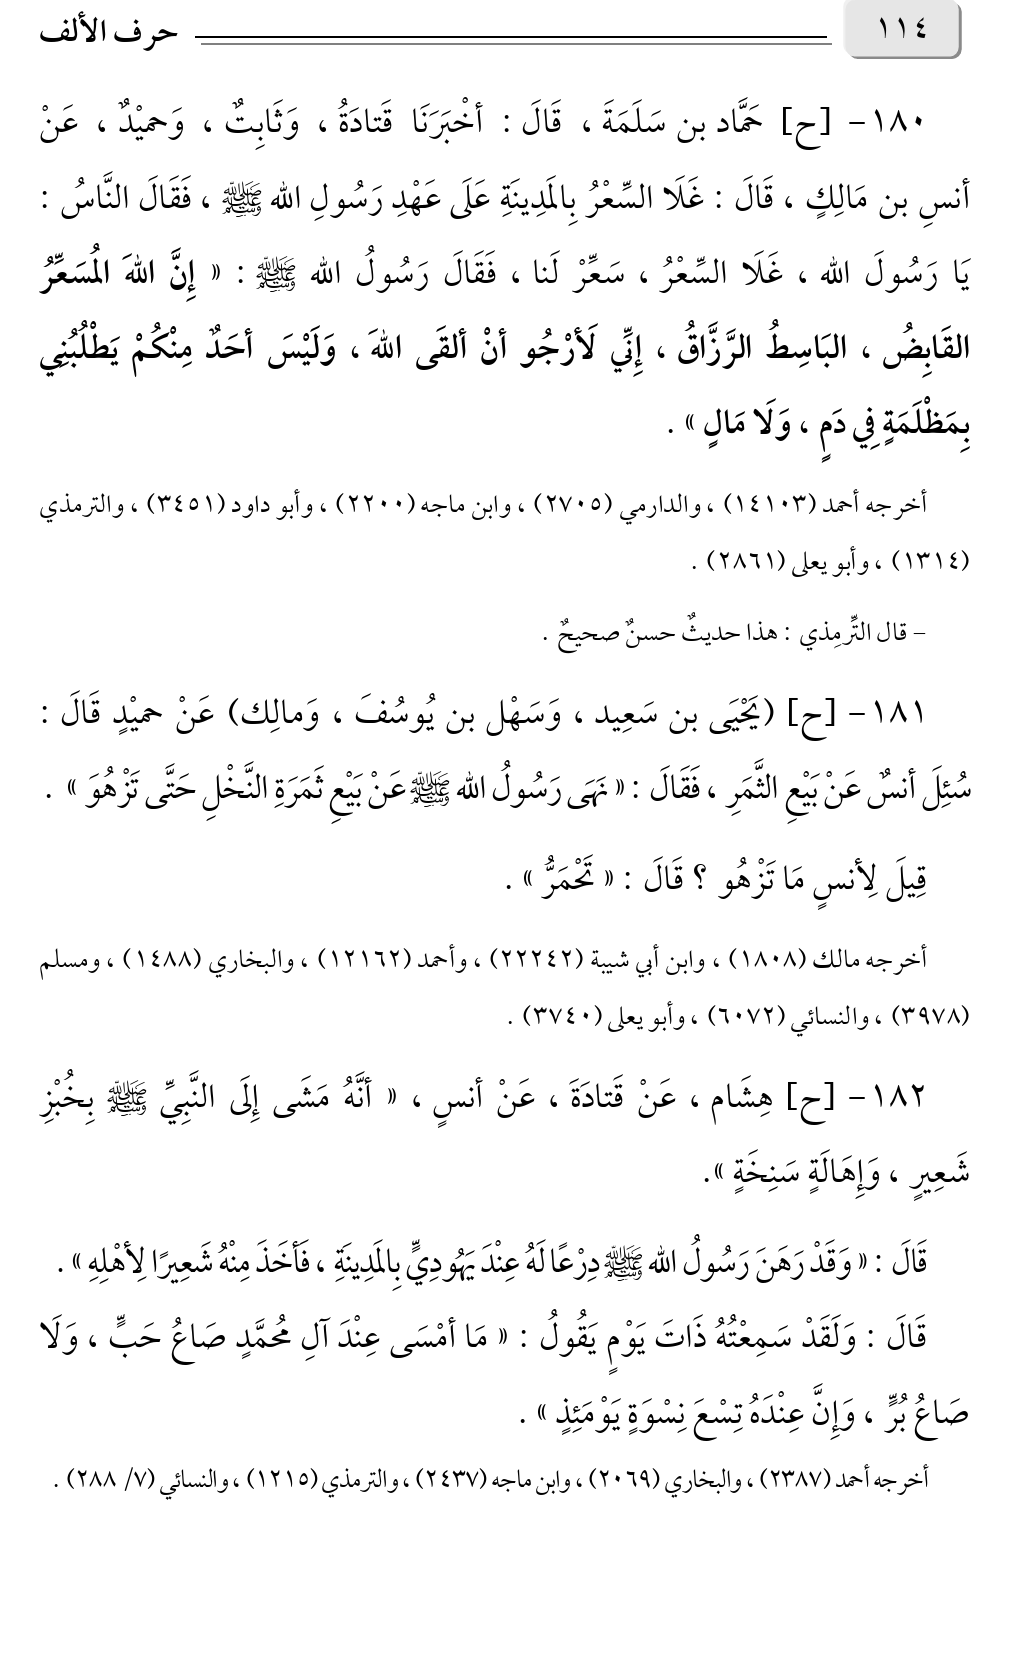 ١١٤ حرف الألف
١٨٠- [ح] حَمَّاد بن سَلَمَةَ ، قَالَ : أخْبَرَنَا قَتادَةُ ، وَثَابِتٌ ، وَحميْدٌ ، عَنْ
أنسِ بن مَالِكٍ ، قَالَ : غَلَا السِّعْرُ بِالمَدِينَةِ عَلَى عَهْدِ رَسُولِ الله ﷺ ، فَقَالَ النَّاسُ :
يَا رَسُولَ الله ، غَلَا السِّعْرُ ، سَعِّرْ لَنا ، فَقَالَ رَسُولُ الله ﷺ : « إِنَّ اللهَ المُسَعِّرُ
القَابِضُ ، البَاسِطُ الرَّزَّاقُ ، إِنِّي لَأرْجُو أنْ ألقَى اللهَ ، وَلَيْسَ أحَدٌ مِنْكُمْ يَطْلُبُنِي
بِمَظْلَمَةٍ فِي دَمٍ ، وَلَا مَالٍ » .
أخرجه أحمد (١٤١٠٣) ، والدارمي (٢٧٠٥) ، وابن ماجه (٢٢٠٠) ، وأبو داود (٣٤٥١) ، والترمذي
(١٣١٤) ، وأبو يعلى (٢٨٦١) .
– قال التِّرمِذي : هذا حديثٌ حسنٌ صحيحٌ .
١٨١- [ح] (يَحْيَى بن سَعِيد ، وَسَهْل بن يُوسُفَ ، وَمالِك) عَنْ حميْدٍ قَالَ :
سُئِلَ أنسٌ عَنْ بَيْعِ الثَّمَرِ ، فَقَالَ : « نَهَى رَسُولُ الله ﷺ عَنْ بَيْعِ ثَمَرَةِ النَّخْلِ حَتَّى تَزْهُوَ » .
قِيلَ لِأنسٍ مَا تَزْهُو ؟ قَالَ : « تَحْمَرُّ » .
أخرجه مالك (١٨٠٨) ، وابن أبي شيبة (٢٢٢٤٢) ، وأحمد (١٢١٦٢) ، والبخاري (١٤٨٨) ، ومسلم
(٣٩٧٨) ، والنسائي (٦٠٧٢) ، وأبو يعلى (٣٧٤٠) .
١٨٢- [ح] هِشَام ، عَنْ قَتادَةَ ، عَنْ أنسٍ ، « أنَّهُ مَشَى إِلَى النَّبِيِّ ﷺ بِخُبْزِ
شَعِيرٍ ، وَإِهَالَةٍ سَنِخَةٍ ».
قَالَ : « وَقَدْ رَهَنَ رَسُولُ الله ﷺ دِرْعًا لَهُ عِنْدَ يَهُودِيٍّ بِالمَدِينَةِ ، فَأخَذَ مِنْهُ شَعِيرًا لِأهْلِهِ » .
قَالَ : وَلَقَدْ سَمِعْتُهُ ذَاتَ يَوْمٍ يَقُولُ : « مَا أمْسَى عِنْدَ آلِ مُحمَّدٍ صَاعُ حَبٍّ ، وَلَا
صَاعُ بُرٍّ ، وَإِنَّ عِنْدَهُ تِسْعَ نِسْوَةٍ يَوْمَئِذٍ » .
أخرجه أحمد (٢٣٨٧) ، والبخاري (٢٠٦٩) ، وابن ماجه (٢٤٣٧) ، والترمذي (١٢١٥) ، والنسائي (٧/ ٢٨٨) .